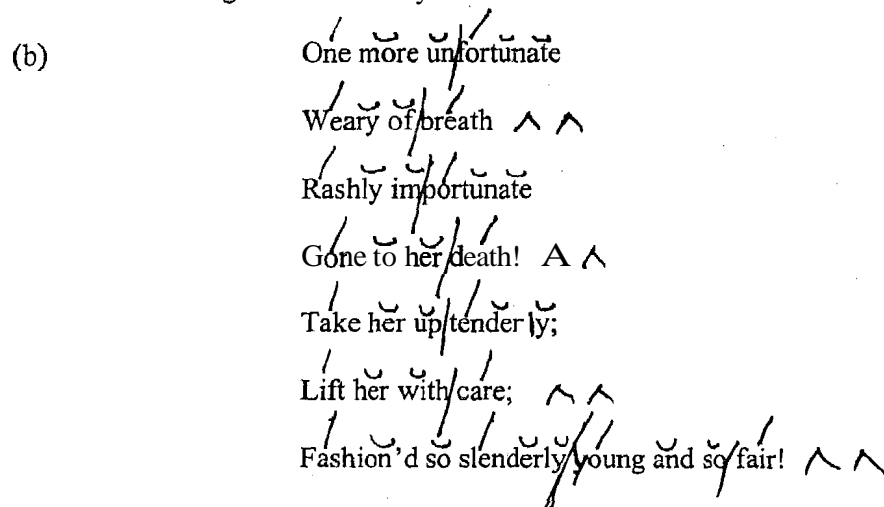 (b)
One more unfortunate
Weary of breath ^ ^
Rashly importunate
Gone to her death! A ^
Take her up tenderly;
Lift her with care; ^ ^
Fashion'd so slenderly young and so fair! ^ ^